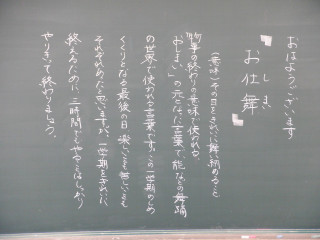 おはようございます
『お仕舞』
しまい
(意味)その日をきれいに舞い納めること
物事の終わりの意味で使われる、
「おしまい」の元となった言葉で、能などの舞踊
の世界で使われる言葉です。この一学期のしめ
くくりとなる最後の日 楽しいことも悲しいことも
それぞれあったと思いますが、一学期をきれいに
終えるために、三時間でしたがしっかり
やりきって終わりましょう。